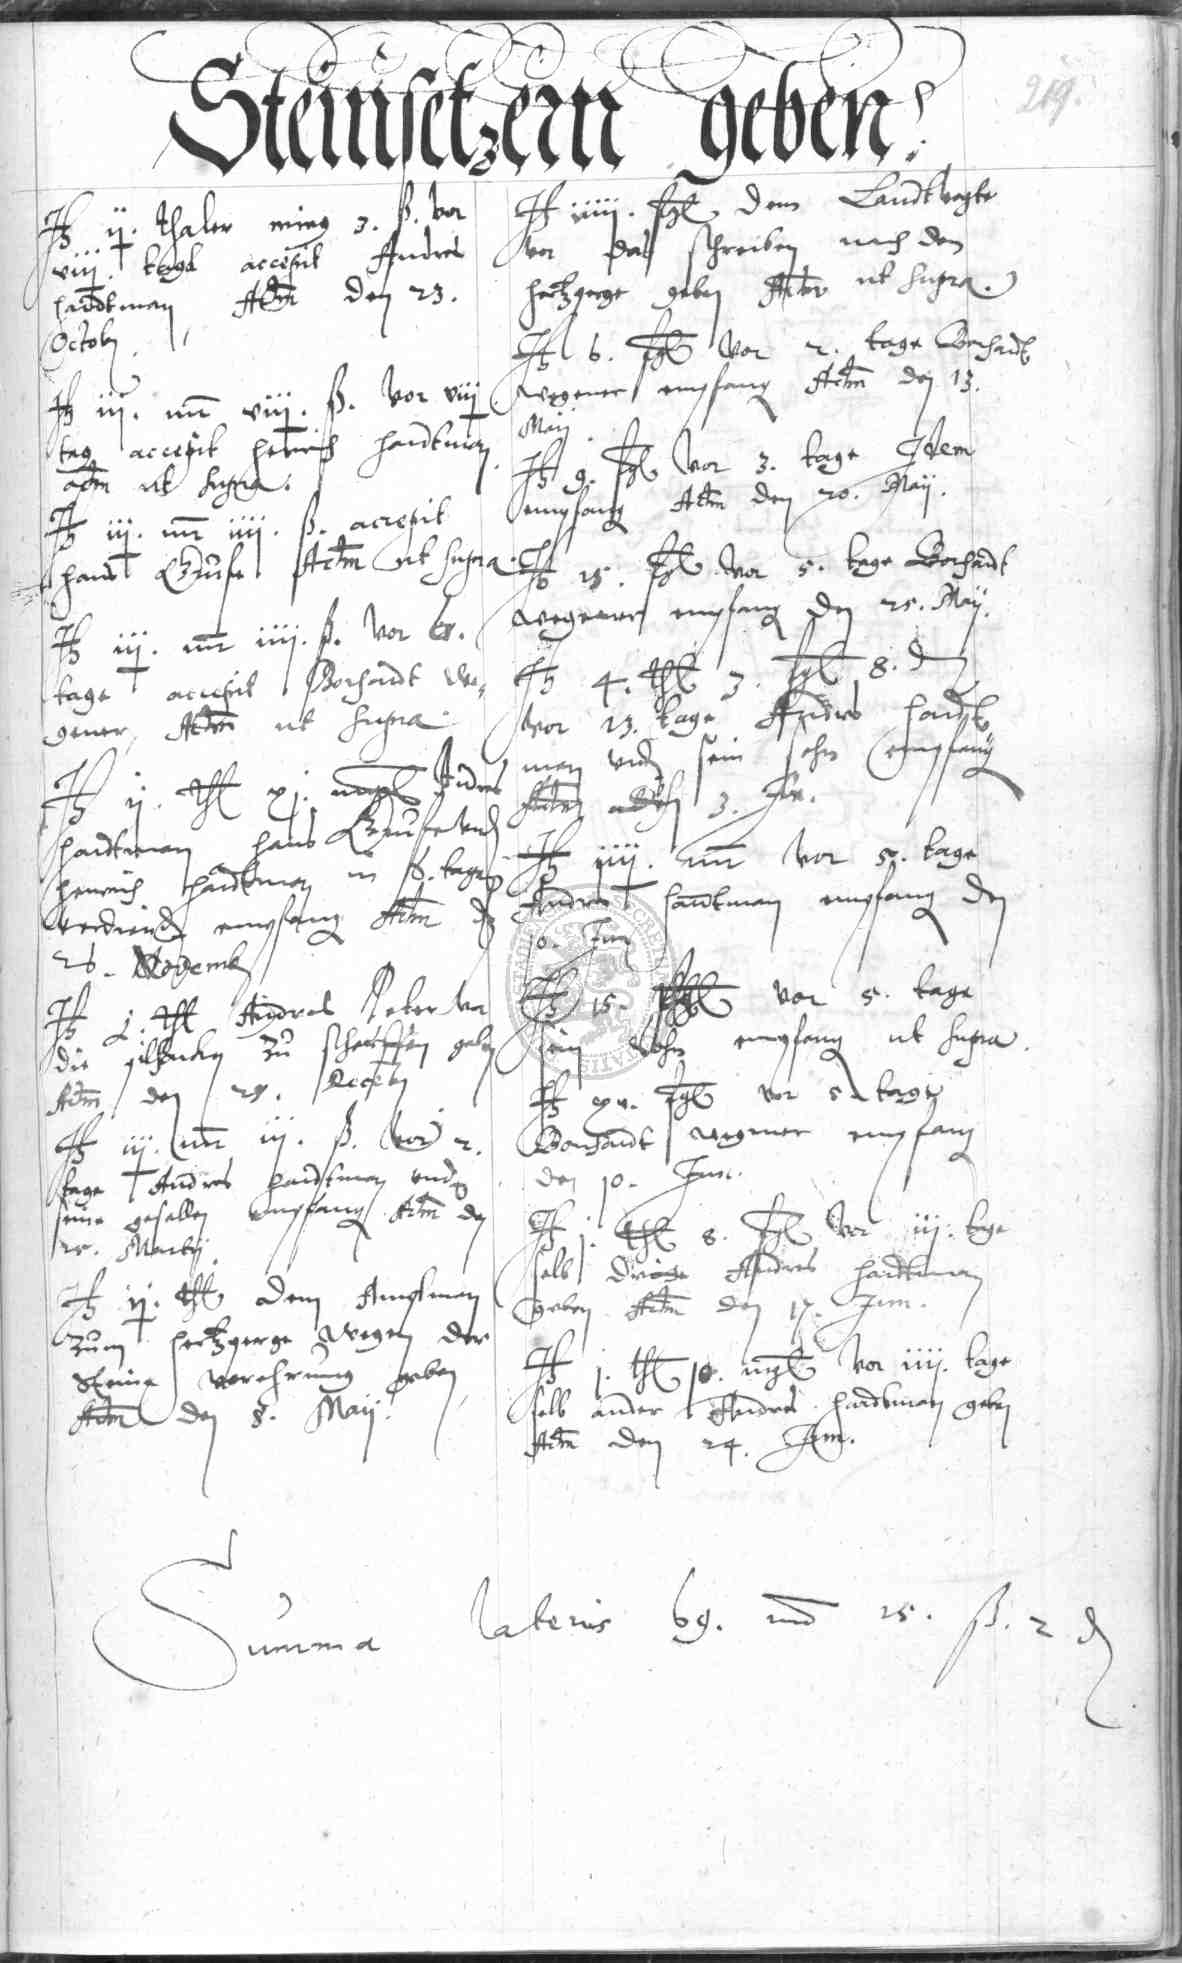 219.
Steinsetzern geben
It ij. thaler minus 3. ß. vor
viij. tage accepit Andres
Handtman Actm den 23.
Octob
It iij. mr viij. ß. vor viij
tag accepit Henrich Handtman
actm ut supra.
It iij. mr iiij. ß. accepit
Hans Kruse Actm ut supra.
It iij. mr iiij. ß. vor
tage accepit Borchardt We-
gener, Actm ut supra.
It ij. thl xj. Andres
Handtman Hans Kruse und
Henrich Handtman in tage
verdienet empfang Actm d
26. Novemb
It j. thl Andres Peter vor
die zu scherpffen geben
Actm den 29. Decemb
It iij. mr iij. ß. vor 2.
tage Andres Handtman und
seine gesellen empfang Actm den
25. Martij
It ij. thl dem Amptman
zum Hertzberge wegen der
Steine verehrung geben
Actm den 8. Maij.
It iiij. fgl dem Landtvogte
vor das schreiben nach dem
Hertzberge geben Actm ut supra.
It 6. fgl vor 2. tage Borchardt
Wegener empfang Actm den 13.
Maij
It 9. fgl vor 3. tage Idem
empfang Actm den 20. Maij.
It 15. fgl vor 5. tage Borchardt
Wegener empfang den 25. Maij.
It 4. thl 3. fgl 8. d
vor 13. tage Andres Handt
man und sein sohn empfang
Actm den 3. Jun.
It iiij. mr vor 5. tage
Andres Handtman empfang den
10. Jun
It 15. fgl vor 5. tage
sein sohn empfang ut supra.
It xv. fgl vor 5 tage
Borchardt Wegener empfang
den 10. Jun.
It j. thl 8. fgl vor iij. tage
selb dridde Andres Handtman
geben Actm den 17. Jun.
It j. thl 10. mgl vor iiij. tage
selb ander Andres Handtman geben
Actm den 24. Jun.
Summa lateris 69. md 25. ß. 2 d